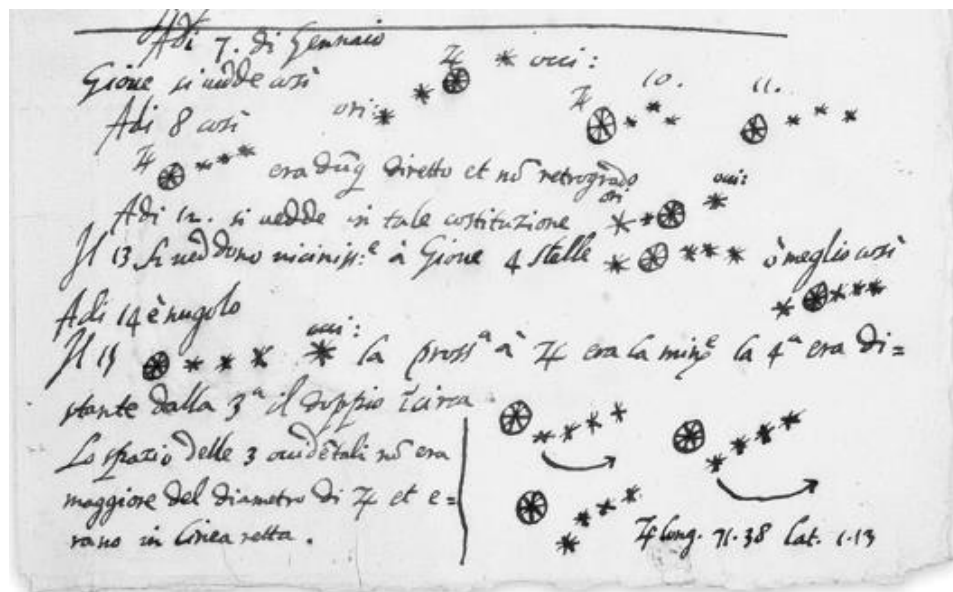 Adi 7. di Gennaio
Gioue si uedde così
♃ * occi:
ori:
Adi 8 così
♃ 10. 11.
♃ era dūq diretto et nō retrogrado
Adi 12. si uedde in tale costituzione ori: occi:
Il 13 si ueddono uicinissᵉ à Gioue 4 stelle ò meglio così
Adi 14 è nugolo
Il 15 occi: la prossᵃ à ♃ era la minᵉ la 4ᵃ era di=
stante dalla 3ᵃ il doppio ī circa
Lo spazio delle 3 occidētali nō era
maggiore del diametro di ♃ et e=
rano in linea retta.
♃ long. 71.38 lat. 1.13